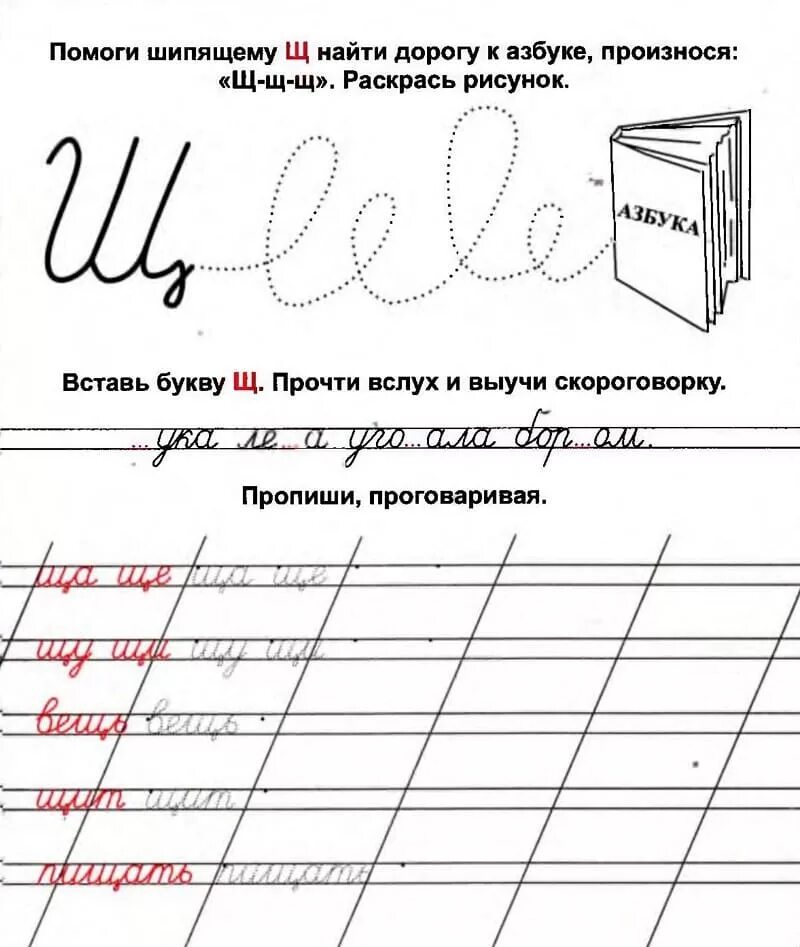 Помоги шипящему Щ найти дорогу к азбуке, произнося:
«Щ-щ-щ». Раскрась рисунок.
Щ
АЗБУКА
Вставь букву Щ. Прочти вслух и выучи скороговорку.
...ука ле...а уго...ала бор...ом.
Пропиши, проговаривая.
ща ще ща ще
щу щи щу щи
вещь вещь
щит щит
пищать пищать